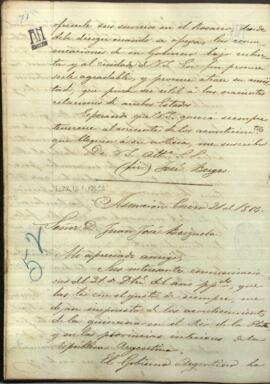 ofrecerle sus servicios en el Rosario, donde
debe dirigir cuando se ofrezca las comu-
nicaciones de su Gobierno bajo cubier-
ta y al cuidado de V.E.
serle agradable, y procure atraer su amis-
tad, que puede ser útil á las crecientes
relaciones de ambos Estados.
Esperando que V.E. quiera siempre
tenerme al corriente de los acontecimtos
que lleguen á su noticia, me suscribo
De V.E. Atto. S.S.
(fir) José Berges
Asuncion Enero 21 de 1864
Señor D. Juan José Brizuela
52
Mi apreciado amigo:
Sus interesantes comunicacio-
nes del 31 de Dbre. del año ppdo. que
las leí con el gusto de siempre, me
dejan impuesto de los acontecimientos
de la guerra en el Rio de la Plata
y en las provincias interiores de la
República Argentina.
El Gobierno Argentino ha